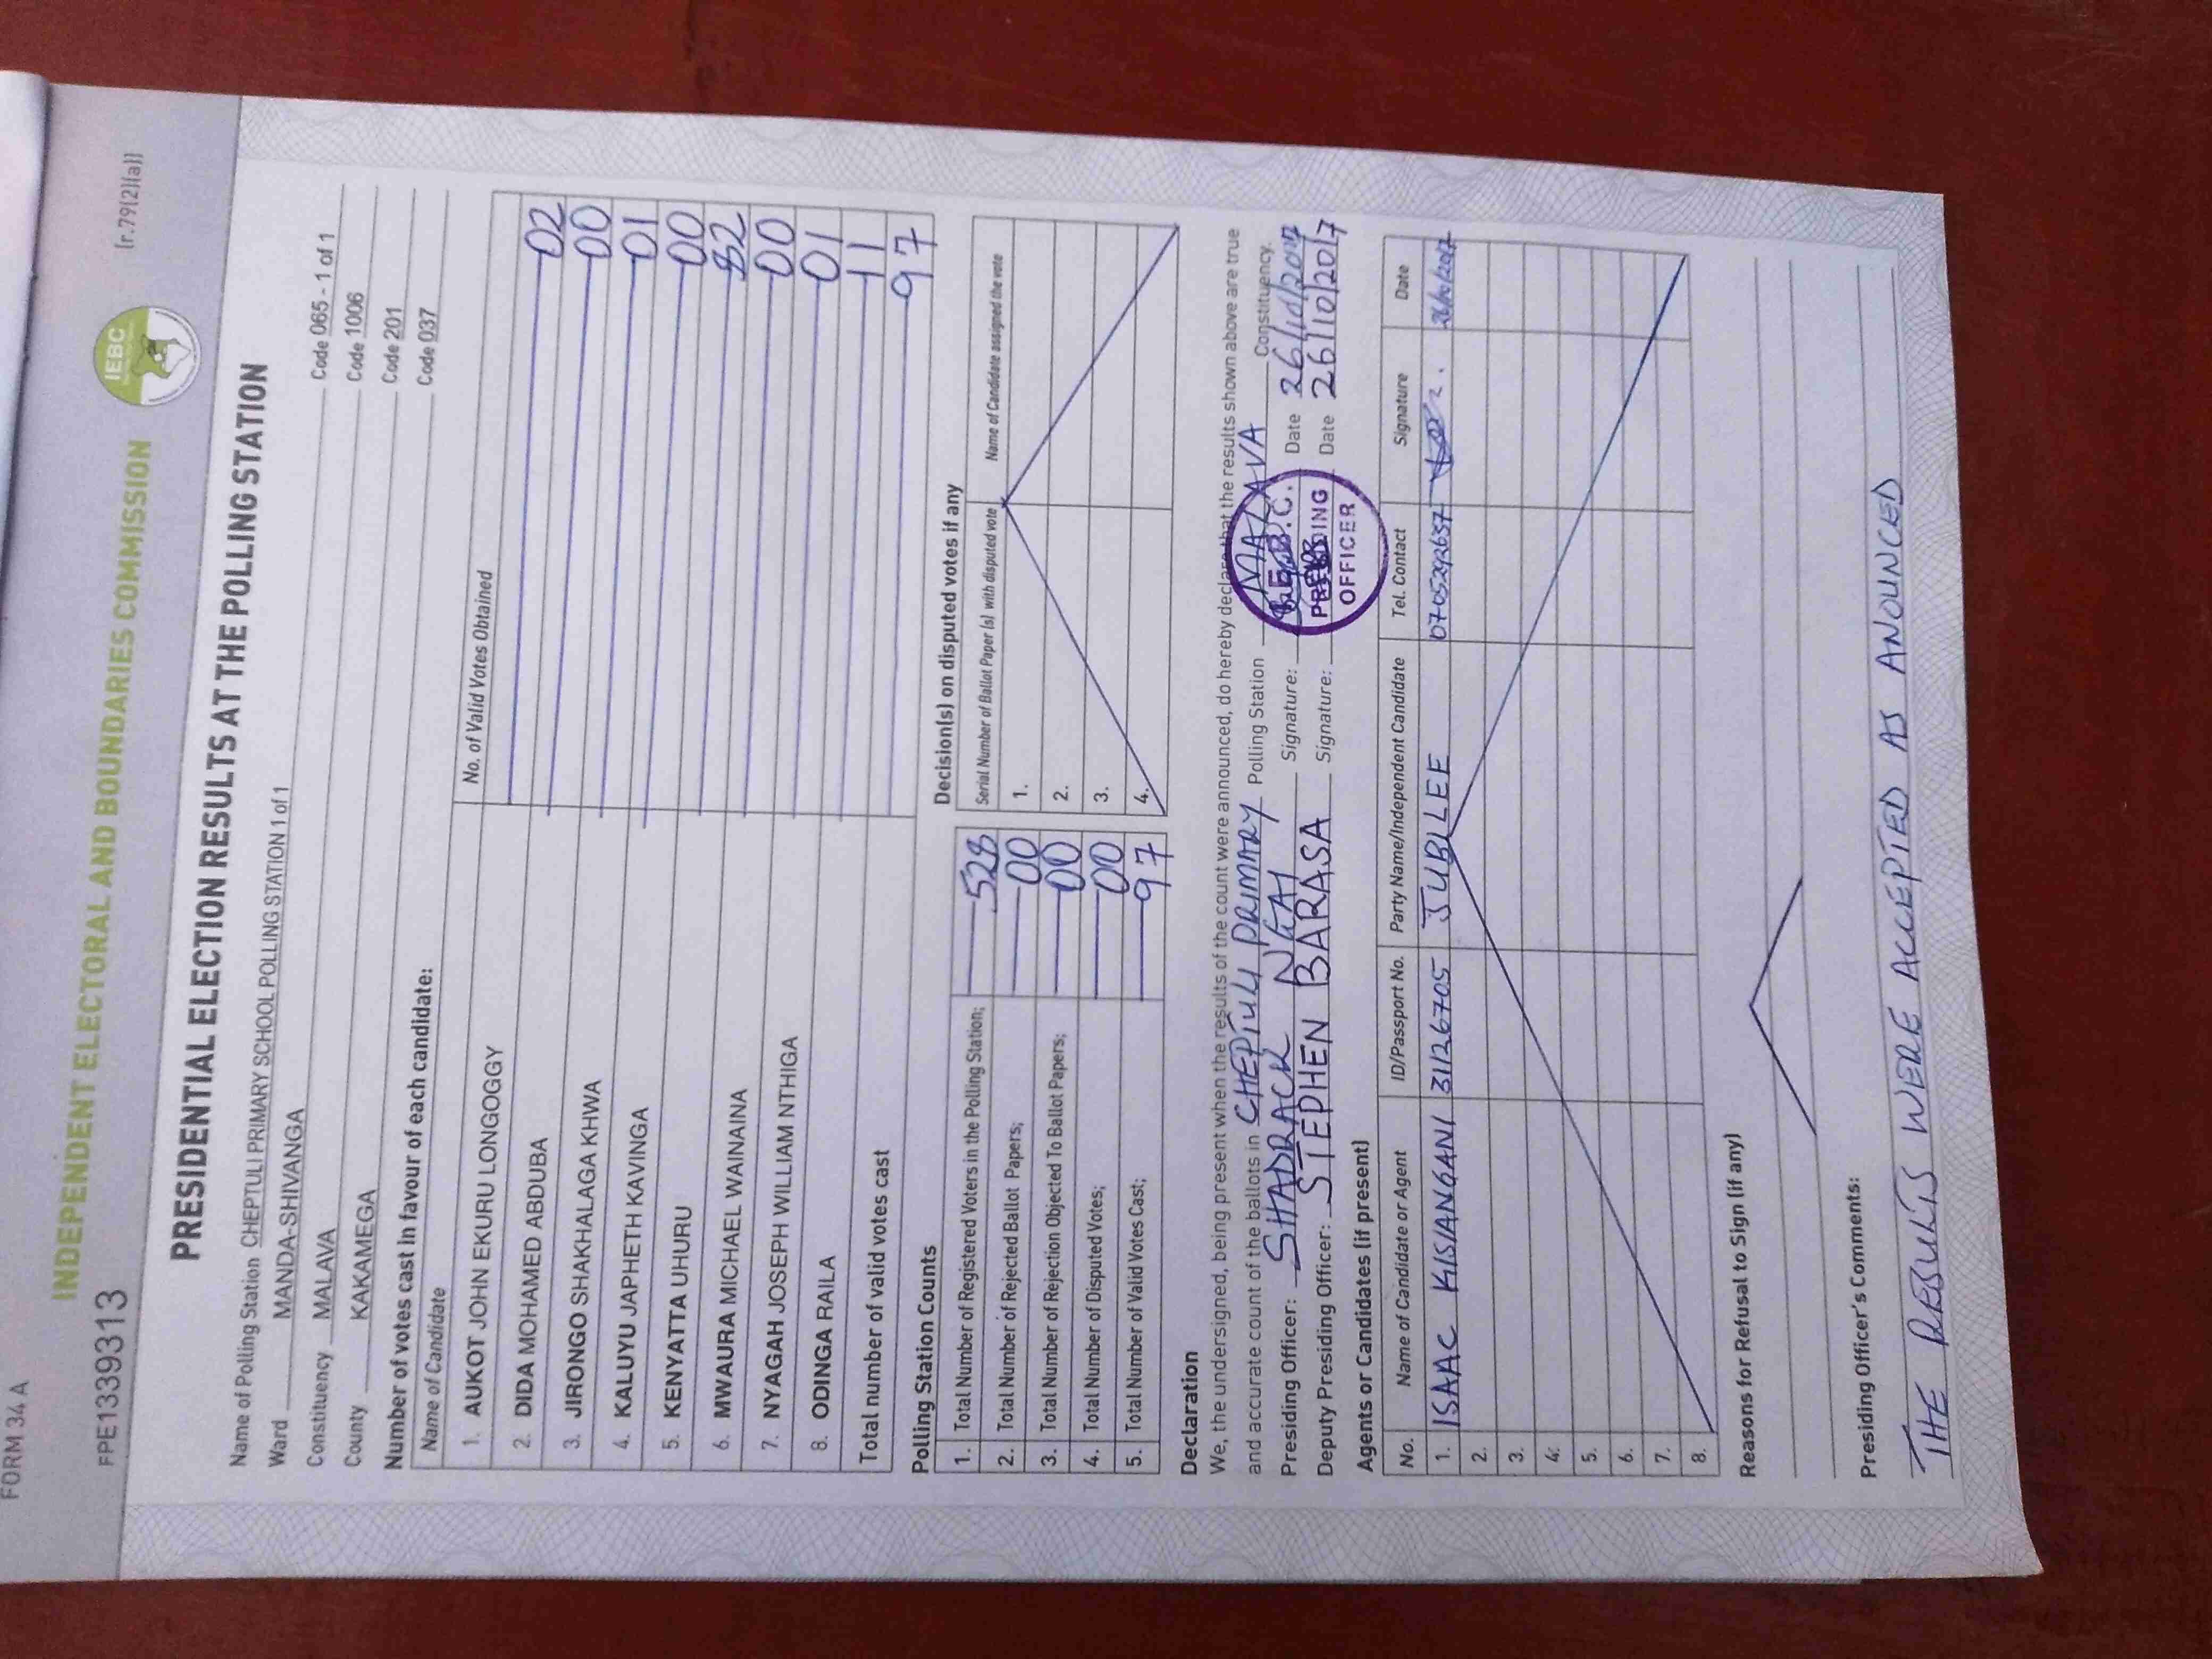 FORM 34 A
INDEPENDENT ELECTORAL AND BOUNDARIES COMMISSION
IEBC
FPE1339313
(r.79(2)(a))
PRESIDENTIAL ELECTION RESULTS AT THE POLLING STATION
Name of Polling Station CHEPTULI PRIMARY SCHOOL POLLING STATION 1 of 1 Code 065 - 1 of 1
Ward MANDA-SHIVANGA Code 1006
Constituency MALAVA Code 201
County KAKAMEGA Code 037
Number of votes cast in favour of each candidate:
Name of Candidate No. of Valid Votes Obtained
1. AUKOT JOHN EKURU LONGOGGY 02
2. DIDA MOHAMED ABDUBA 00
3. JIRONGO SHAKHALAGA KHWA 01
4. KALUYU JAPHETH KAVINGA 00
5. KENYATTA UHURU 82
6. MWAURA MICHAEL WAINAINA 00
7. NYAGAH JOSEPH WILLIAM NTHIGA 01
8. ODINGA RAILA 11
Total number of valid votes cast 97
Polling Station Counts
1. Total Number of Registered Voters in the Polling Station; 528
2. Total Number of Rejected Ballot Papers; 00
3. Total Number of Rejection Objected To Ballot Papers; 00
4. Total Number of Disputed Votes; 00
5. Total Number of Valid Votes Cast; 97
Decision(s) on disputed votes if any
Serial Number of Ballot Paper (s) with disputed vote Name of Candidate assigned the vote
1.
2.
3.
4.
Declaration
We, the undersigned, being present when the results of the count were announced, do hereby declare that the results shown above are true
and accurate count of the ballots in CHEPTULI PRIMARY Polling Station MALAVA Constituency.
Presiding Officer: SHADRACK Signature: Date 26/10/2017
Deputy Presiding Officer: STEPHEN BARASA Signature: Date 26/10/2017
I.E.B.C.
PRESIDING
OFFICER
Agents or Candidates (if present)
No. Name of Candidate or Agent ID/Passport No. Party Name/Independent Candidate Tel. Contact Signature Date
1. ISAAC KISIANGANI 31126705 JUBLLEE 0705292657 26/10/2017
2.
3.
4.
5.
6.
7.
8.
Reasons for Refusal to Sign (if any)
Presiding Officer's Comments:
THE RESULTS WERE ACCEPTED AS ANOUNCED